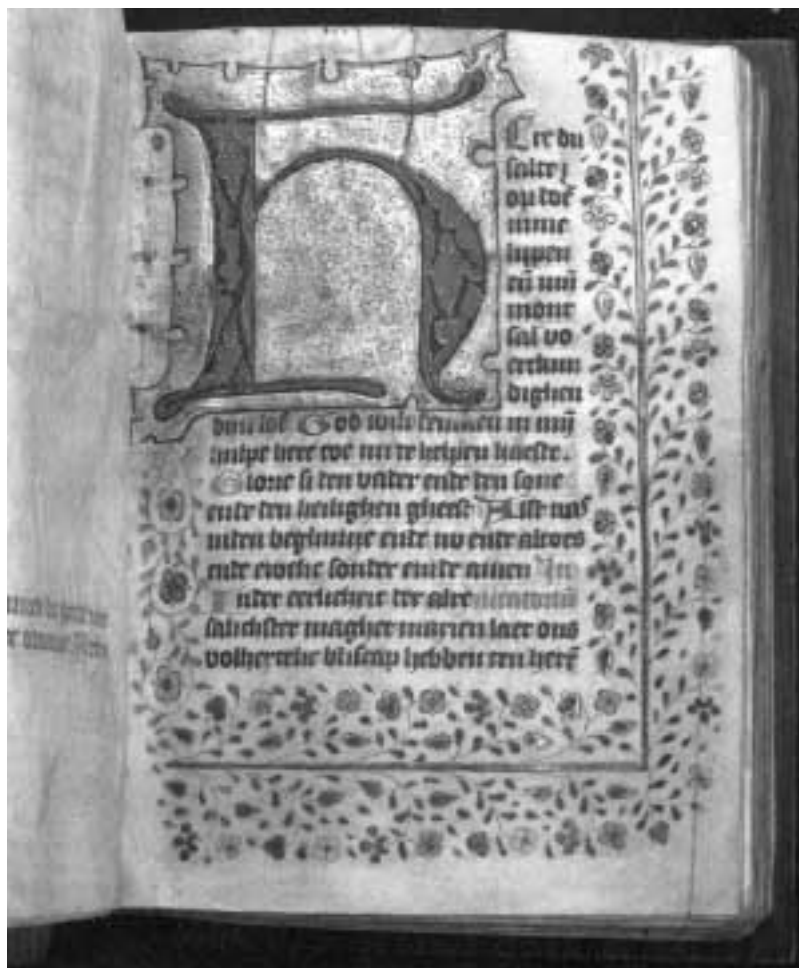 H
Ere du
salte
op doe
mine
lippen
en̄ mijn
mont
sal vo
ertkun
dighen
dijn lof God wilt dencken in mijn
hulpe here doe mi te helpen haeste.
Glorie si den vader ende den sone
ende den heilighen gheest Alst was
inden beghinne ende nv ende altoes
ende ewelic sonder einde amen
Inder eerlicheit der alre
salichster maghet marien laet ons
volherdelic bliscap hebben den here